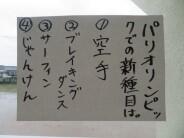 パリオリンピッ
クでの新種目は?
①空手
②ブレイキング
ダンス
③サーフィン
④じゃんけん